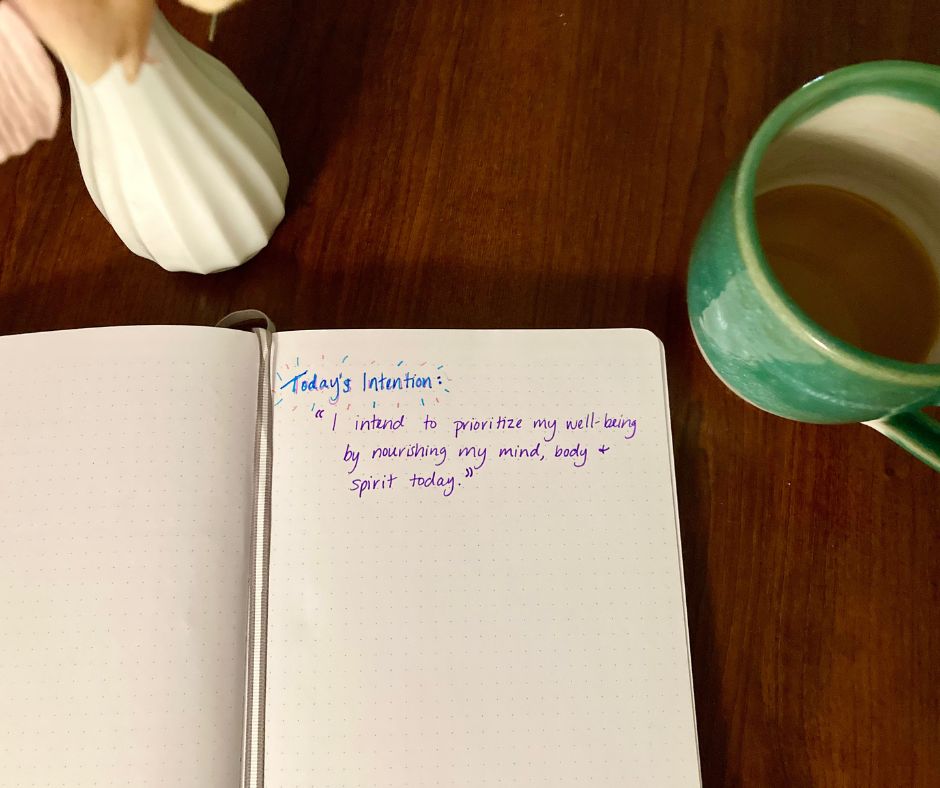 Today's Intention:
“I intend to prioritize my well-being
by nourishing my mind, body +
spirit today.”